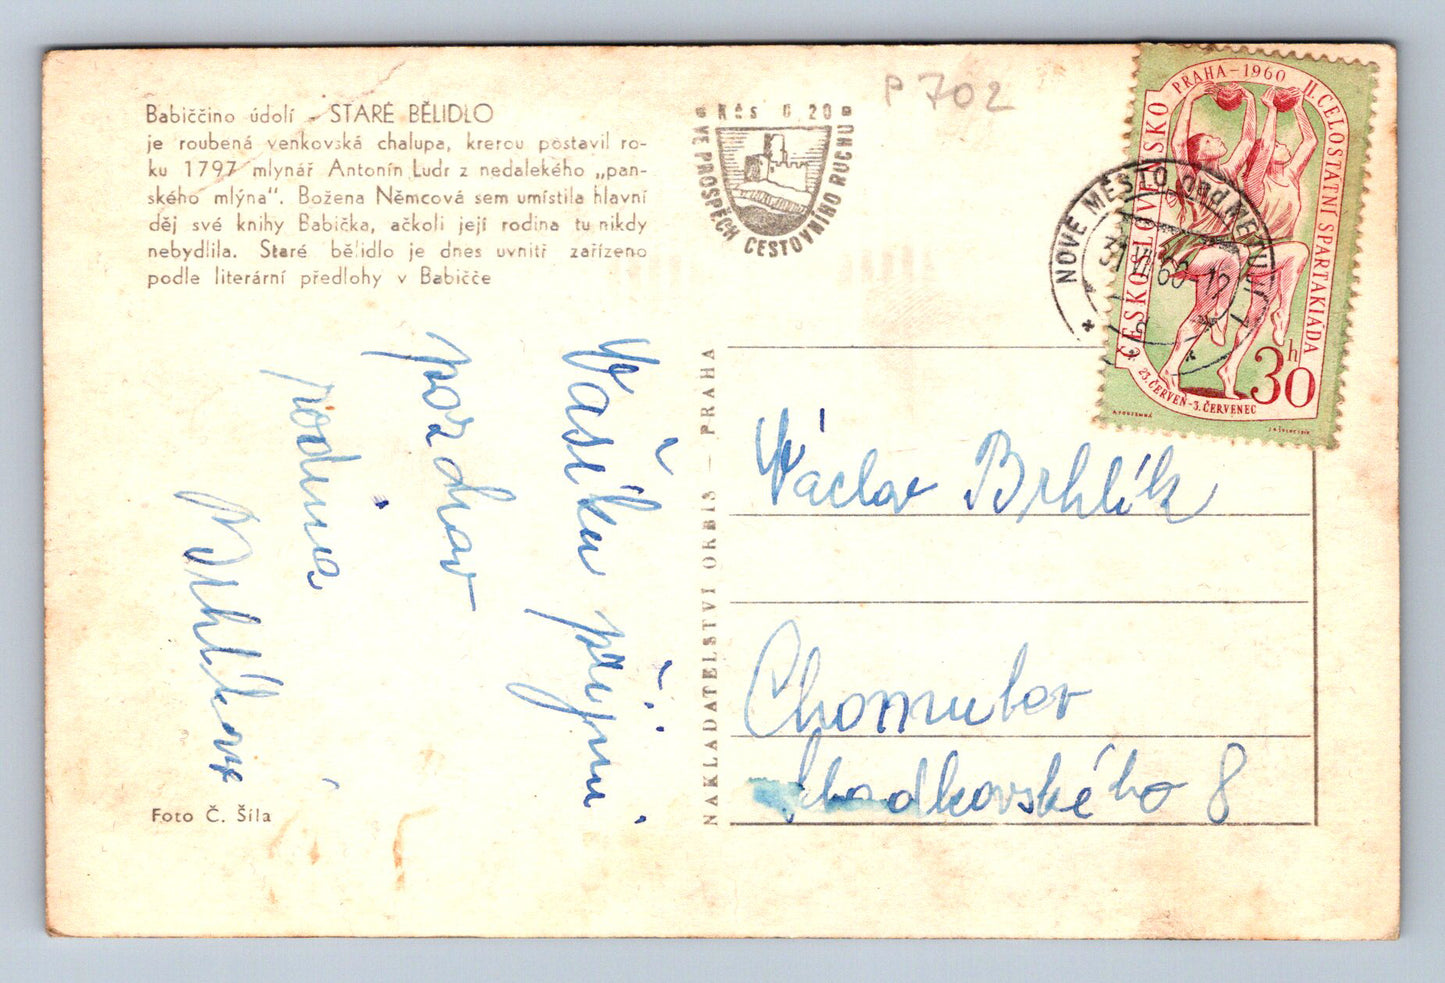 Babiččino údolí - STARÉ BĚLIDLO
je roubená venkovská chalupa, kterou postavil ro-
ku 1797 mlynář Antonín Ludr z nedalekého „pan-
ského mlýna". Božena Němcová sem umístila hlavní
děj své knihy Babička, ačkoli její rodina tu nikdy
nebydlila. Staré bělidlo je dnes uvnitř zařízeno
podle literární předlohy v Babičče
Kčs 0,20
VE PROSPĚCH CESTOVNÍHO RUCHU
P 702
PRAHA-1960
II. CELOSTÁTNÍ SPARTAKIÁDA
ČESKOSLOVENSKO
23. ČERVEN - 3. ČERVENEC
30h
NOVÉ MĚSTO nad METUJÍ
Vašíku přijmi
pozdrav
rodina
Brhlíkova
NAKLADATELSTVÍ ORBIS - PRAHA
Václav Brhlík
Chomutov
8
Foto Č. Šíla